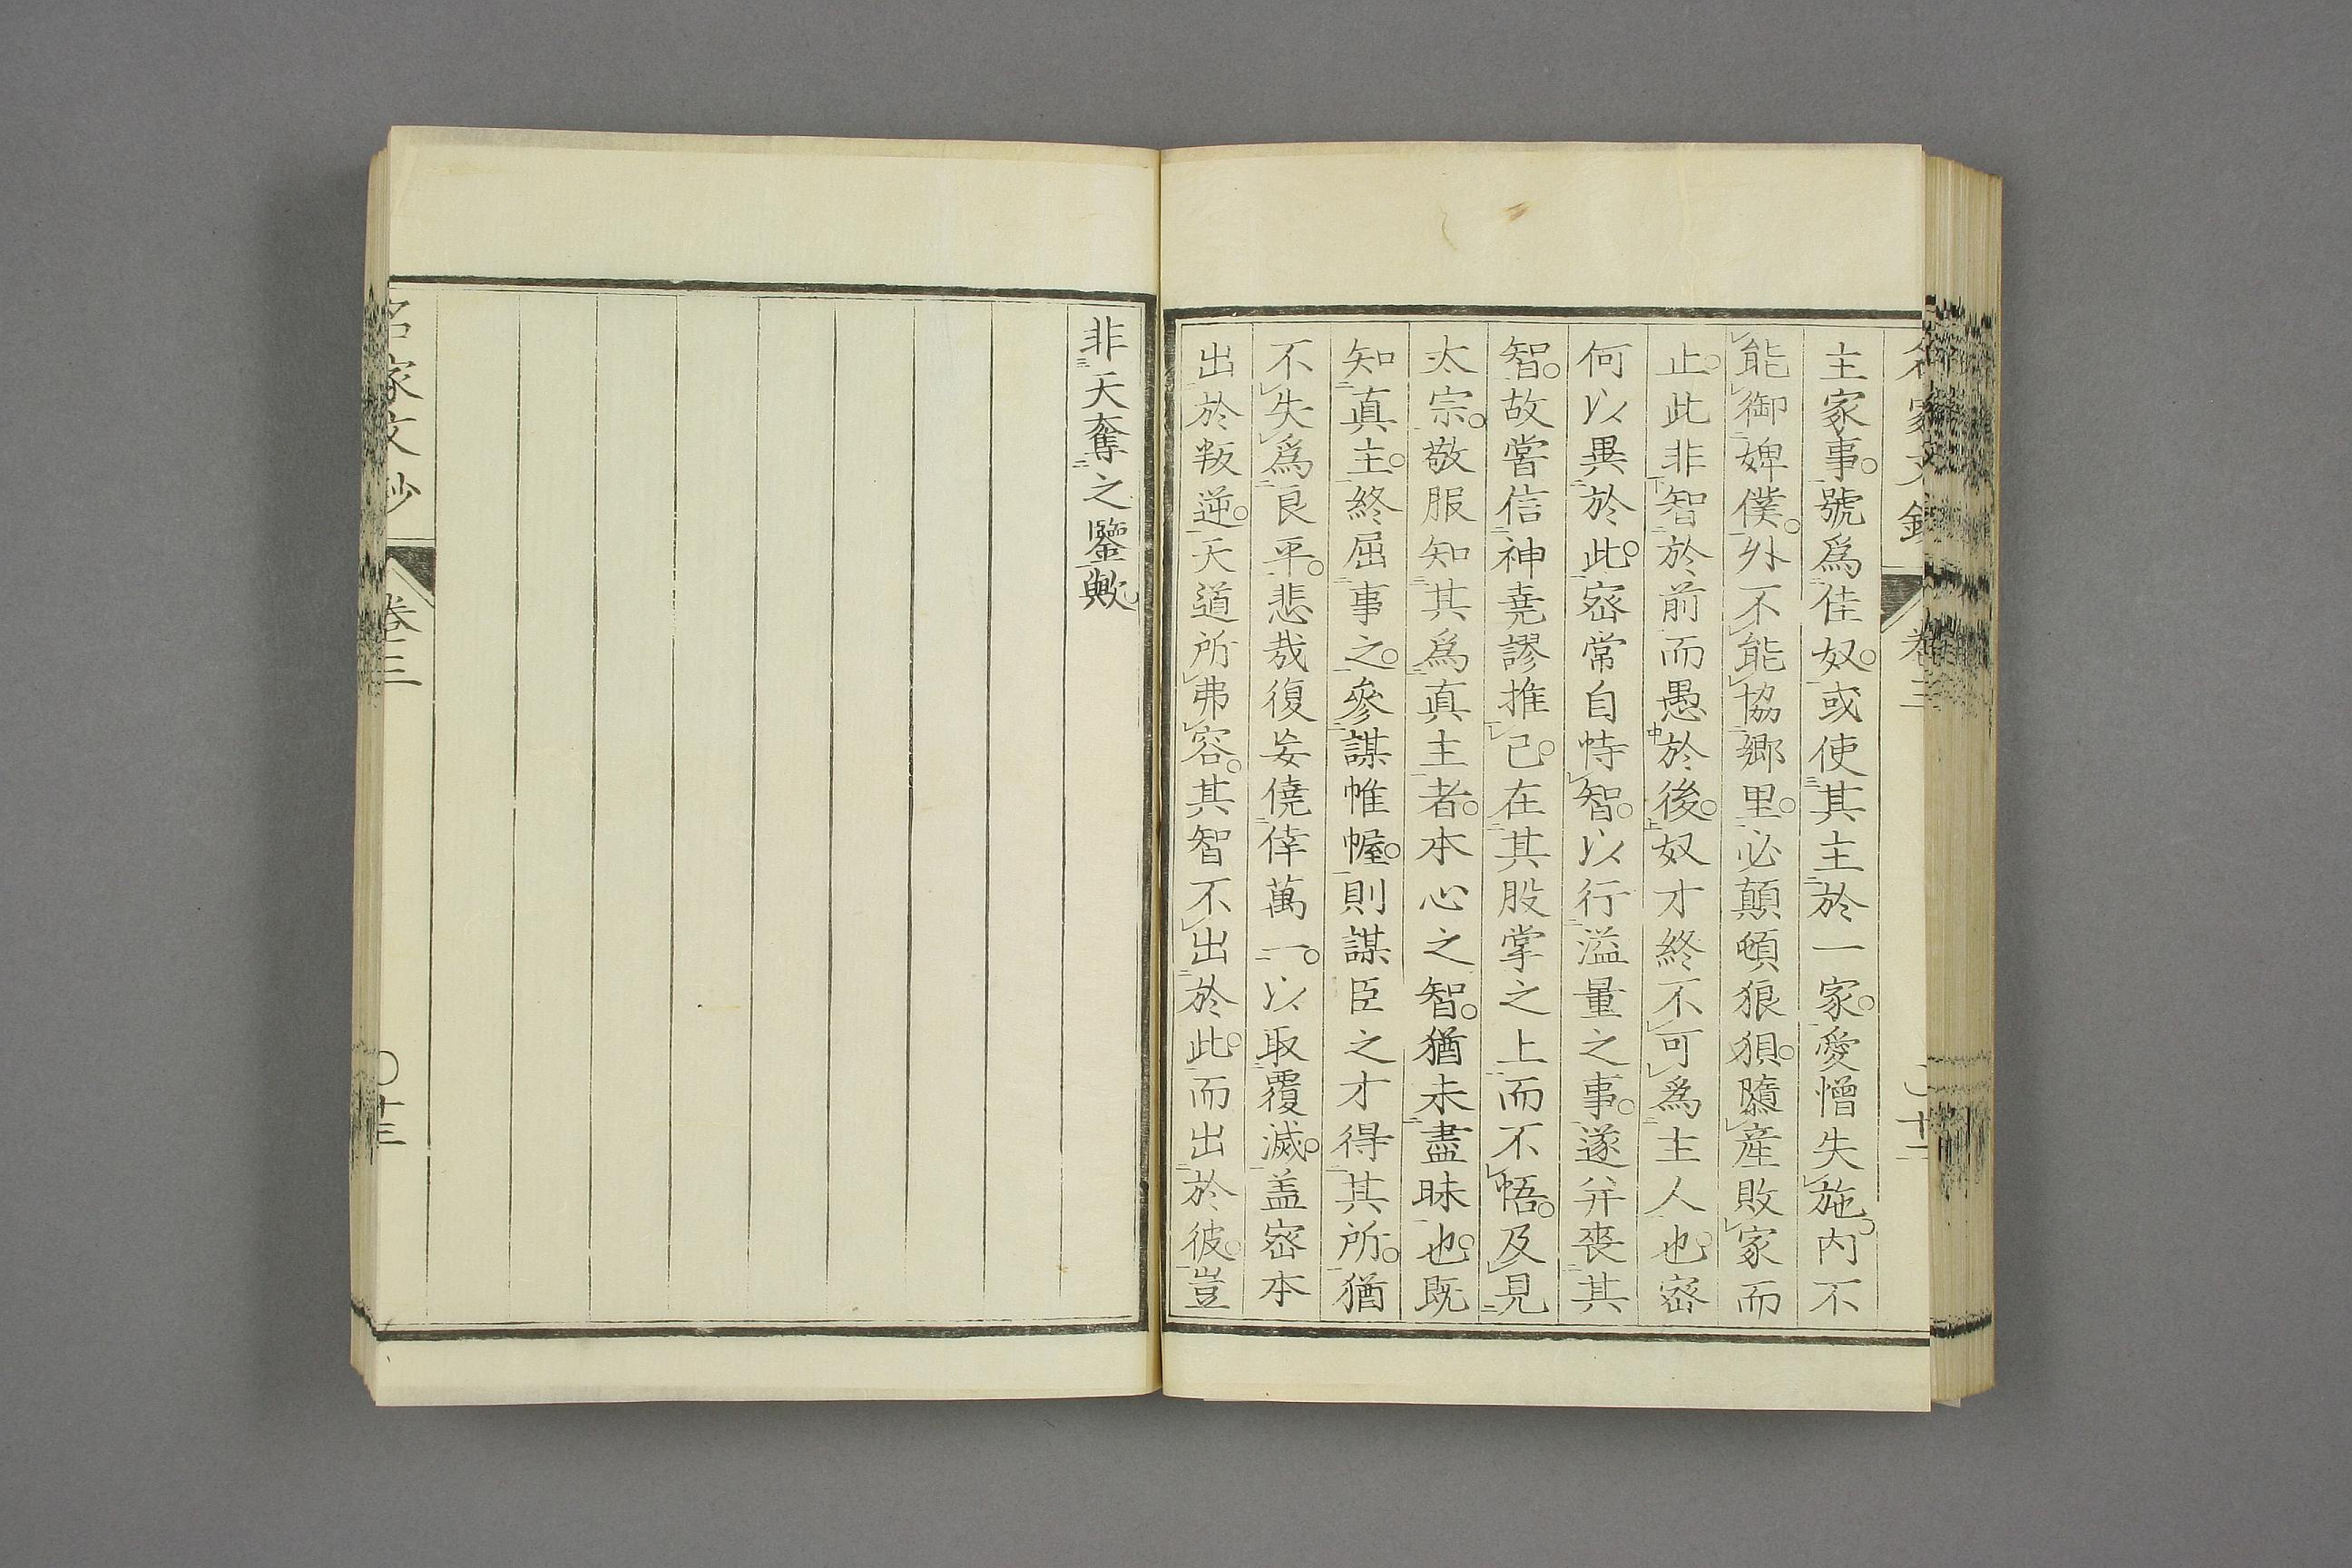 名家文鈔 卷三 〇十二
主家事。號爲佳奴。或使其主於一家。愛憎失施。内不
能御婢僕。外不能協郷里。必顛頓狼狽。隳產敗家而
止。此非智於前而愚於後。奴才終不可爲主人也。宻
何以異於此。宻常自恃智。以行溢量之事。遂并喪其
智。故嘗信神堯謬推己。在其股掌之上而不悟。及見
太宗。敬服知其爲真主者。本心之智。猶未盡昧也。既
知真主。終屈事之。參謀帷幄。則謀臣之才得其所。猶
不失爲良平。悲哉復妄僥倖萬一。以取覆滅。盖宻本
出於叛逆。天道所弗容。其智不出於此。而出於彼。豈
非天奪之鑒歟
名家文鈔 卷三 〇十三